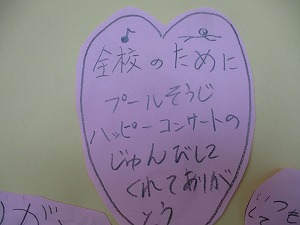 全校のために
プールそうじ
ハッピーコンサートの
じゅんびして
くれてありが
とう
りが
いつも
して